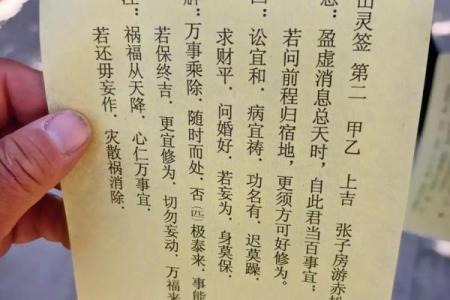 山灵签 第二 甲乙 上吉 张子房游赤
盈虚消息总天时，自此君当百事宜；
若问前程归宿地，更须方可好修为。
讼宜和．病宜祷．功名有．迟莫躁．
求财平．问婚好．若妄为．身莫保．
万事乘除．随时而处．否(匹)极泰来．事能
若保终吉．更宜修为．切勿妄动．万福来
祸福从天降．心仁万事宜．
若还毋妄作．灾散祸消除．